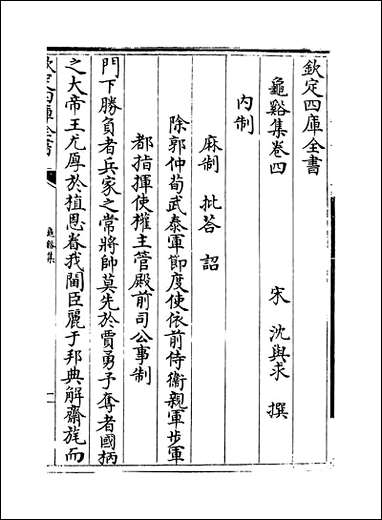 欽定四庫全書
龜谿集卷四
宋 沈與求 撰
內制
麻制 批荅 詔
除郭仲荀武泰軍節度使依前侍衛親軍步軍
都指揮使權主管殿前司公事制
門下勝負者兵家之常將帥莫先於賈勇予奪者國柄
之大帝王尤厚於植恩眷我閫臣麗于邦典解齋旄而
欽定四庫全書
龜谿集
一